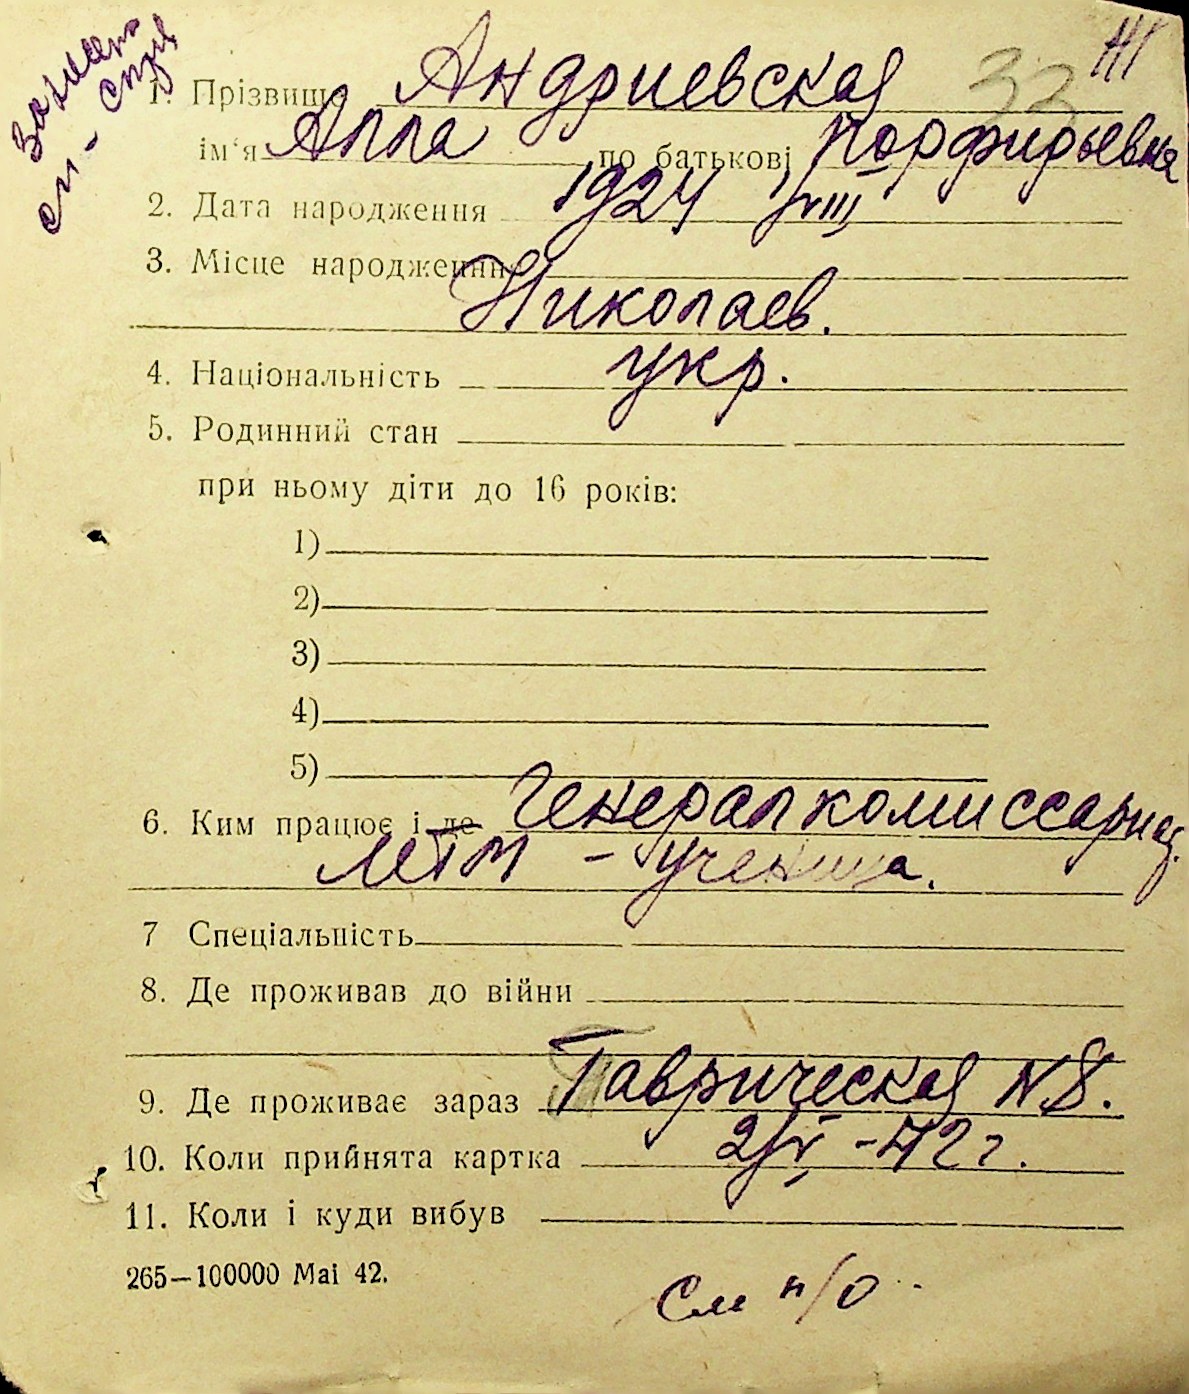 1. Прізвищ Андриевская 33
ім‘я Алла по батькові Порфирьевна
2. Дата народження 1924 1/VIII
3. Місце народження
Николаев.
4. Національність укр.
5. Родинний стан
при ньому діти до 16 років:
1)
2)
3)
4)
5)
6. Ким працює і де Генералкомиссариат.
МТМ - ученица.
7 Спеціальність
8. Де проживав до війни
9. Де проживає зараз Таврическая N 8.
10. Коли прийнята картка 2/V -42 г.
11. Коли і куди вибув
265—100000 Mai 42.
См н/о